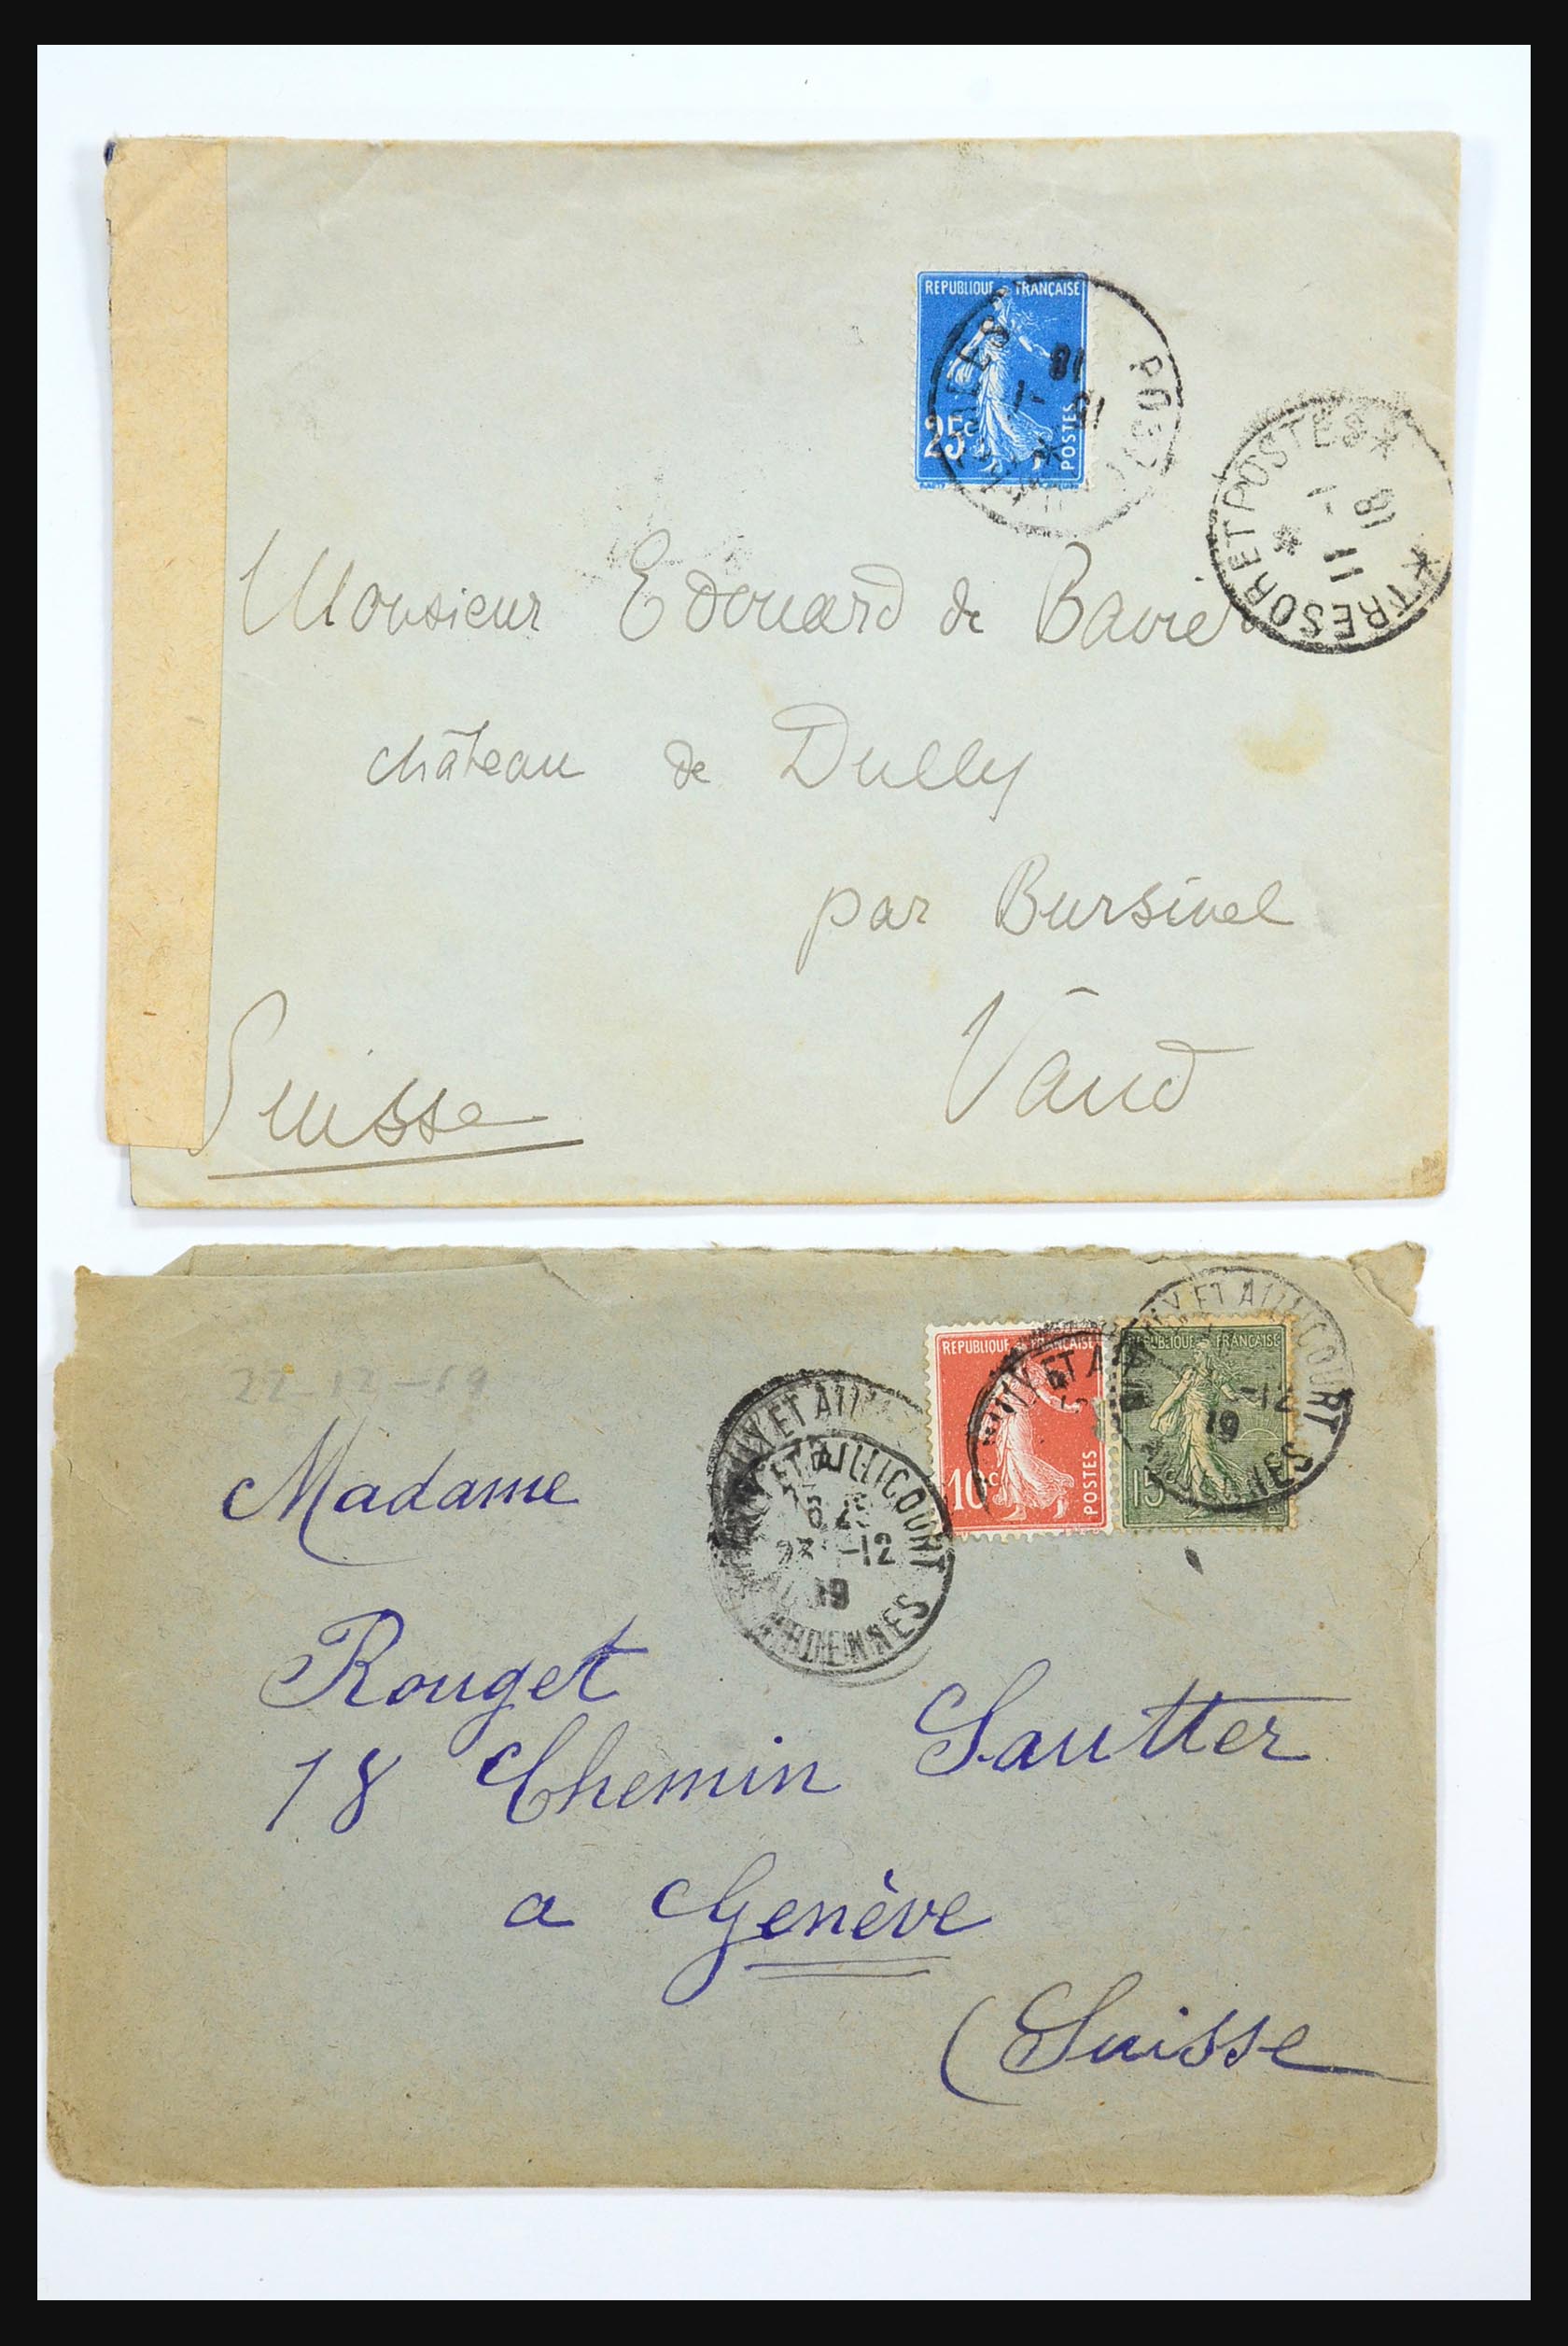 REPUBLIQUE FRANÇAISE
25c
POSTES
18
*TRESOR ET POSTES*
11
-1
18
*
Monsieur Edouard de Bavier
château de Dully
par Bursinel
Vaud
Suisse
REPUBLIQUE FRANÇAISE
10c
POSTES
REPUBLIQUE FRANÇAISE
15c
ET AILLICOURT
-12
19
22-12-19
ET AILLICOURT
23-12
19
ARDENNES
Madame
Rouget
18 Chemin Sautter
a Genève
(Suisse